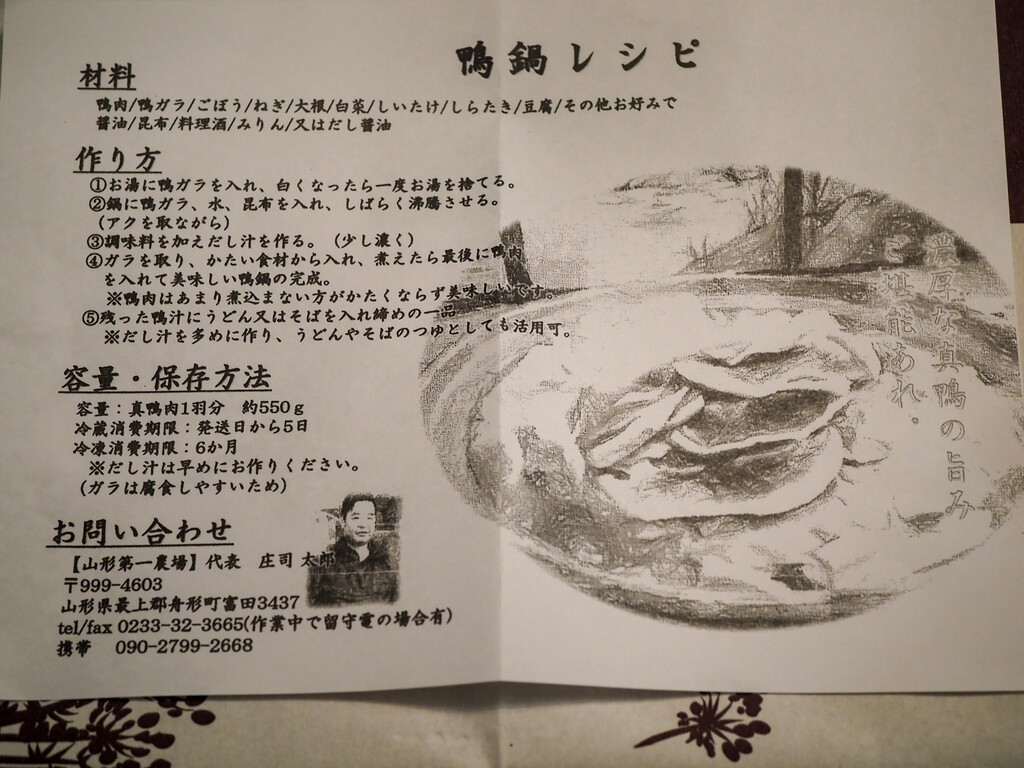 鴨鍋レシピ
材料
鴨肉/鴨ガラ/ごぼう/ねぎ/大根/白菜/しいたけ/しらたき/豆腐/その他お好みで
醤油/昆布/料理酒/みりん/又はだし醤油
作り方
①お湯に鴨ガラを入れ、白くなったら一度お湯を捨てる。
②鍋に鴨ガラ、水、昆布を入れ、しばらく沸騰させる。
(アクを取ながら)
③調味料を加えだし汁を作る。(少し濃く)
④ガラを取り、かたい食材から入れ、煮えたら最後に鴨肉
を入れて美味しい鴨鍋の完成。
※鴨肉はあまり煮込まない方がかたくならず美味しいです。
⑤残った鴨汁にうどん又はそばを入れ締めの一品
※だし汁を多めに作り、うどんやそばのつゆとしても活用可。
濃厚な真鴨の旨み
ご堪能あれ・
容量・保存方法
容量：真鴨肉1羽分 約550ｇ
冷蔵消費期限：発送日から5日
冷凍消費期限：6か月
※だし汁は早めにお作りください。
(ガラは腐食しやすいため)
お問い合わせ
【山形第一農場】代表 庄司 太郎
〒999-4603
山形県最上郡舟形町富田3437
tel/fax 0233-32-3665(作業中で留守電の場合有)
携帯 090-2799-2668